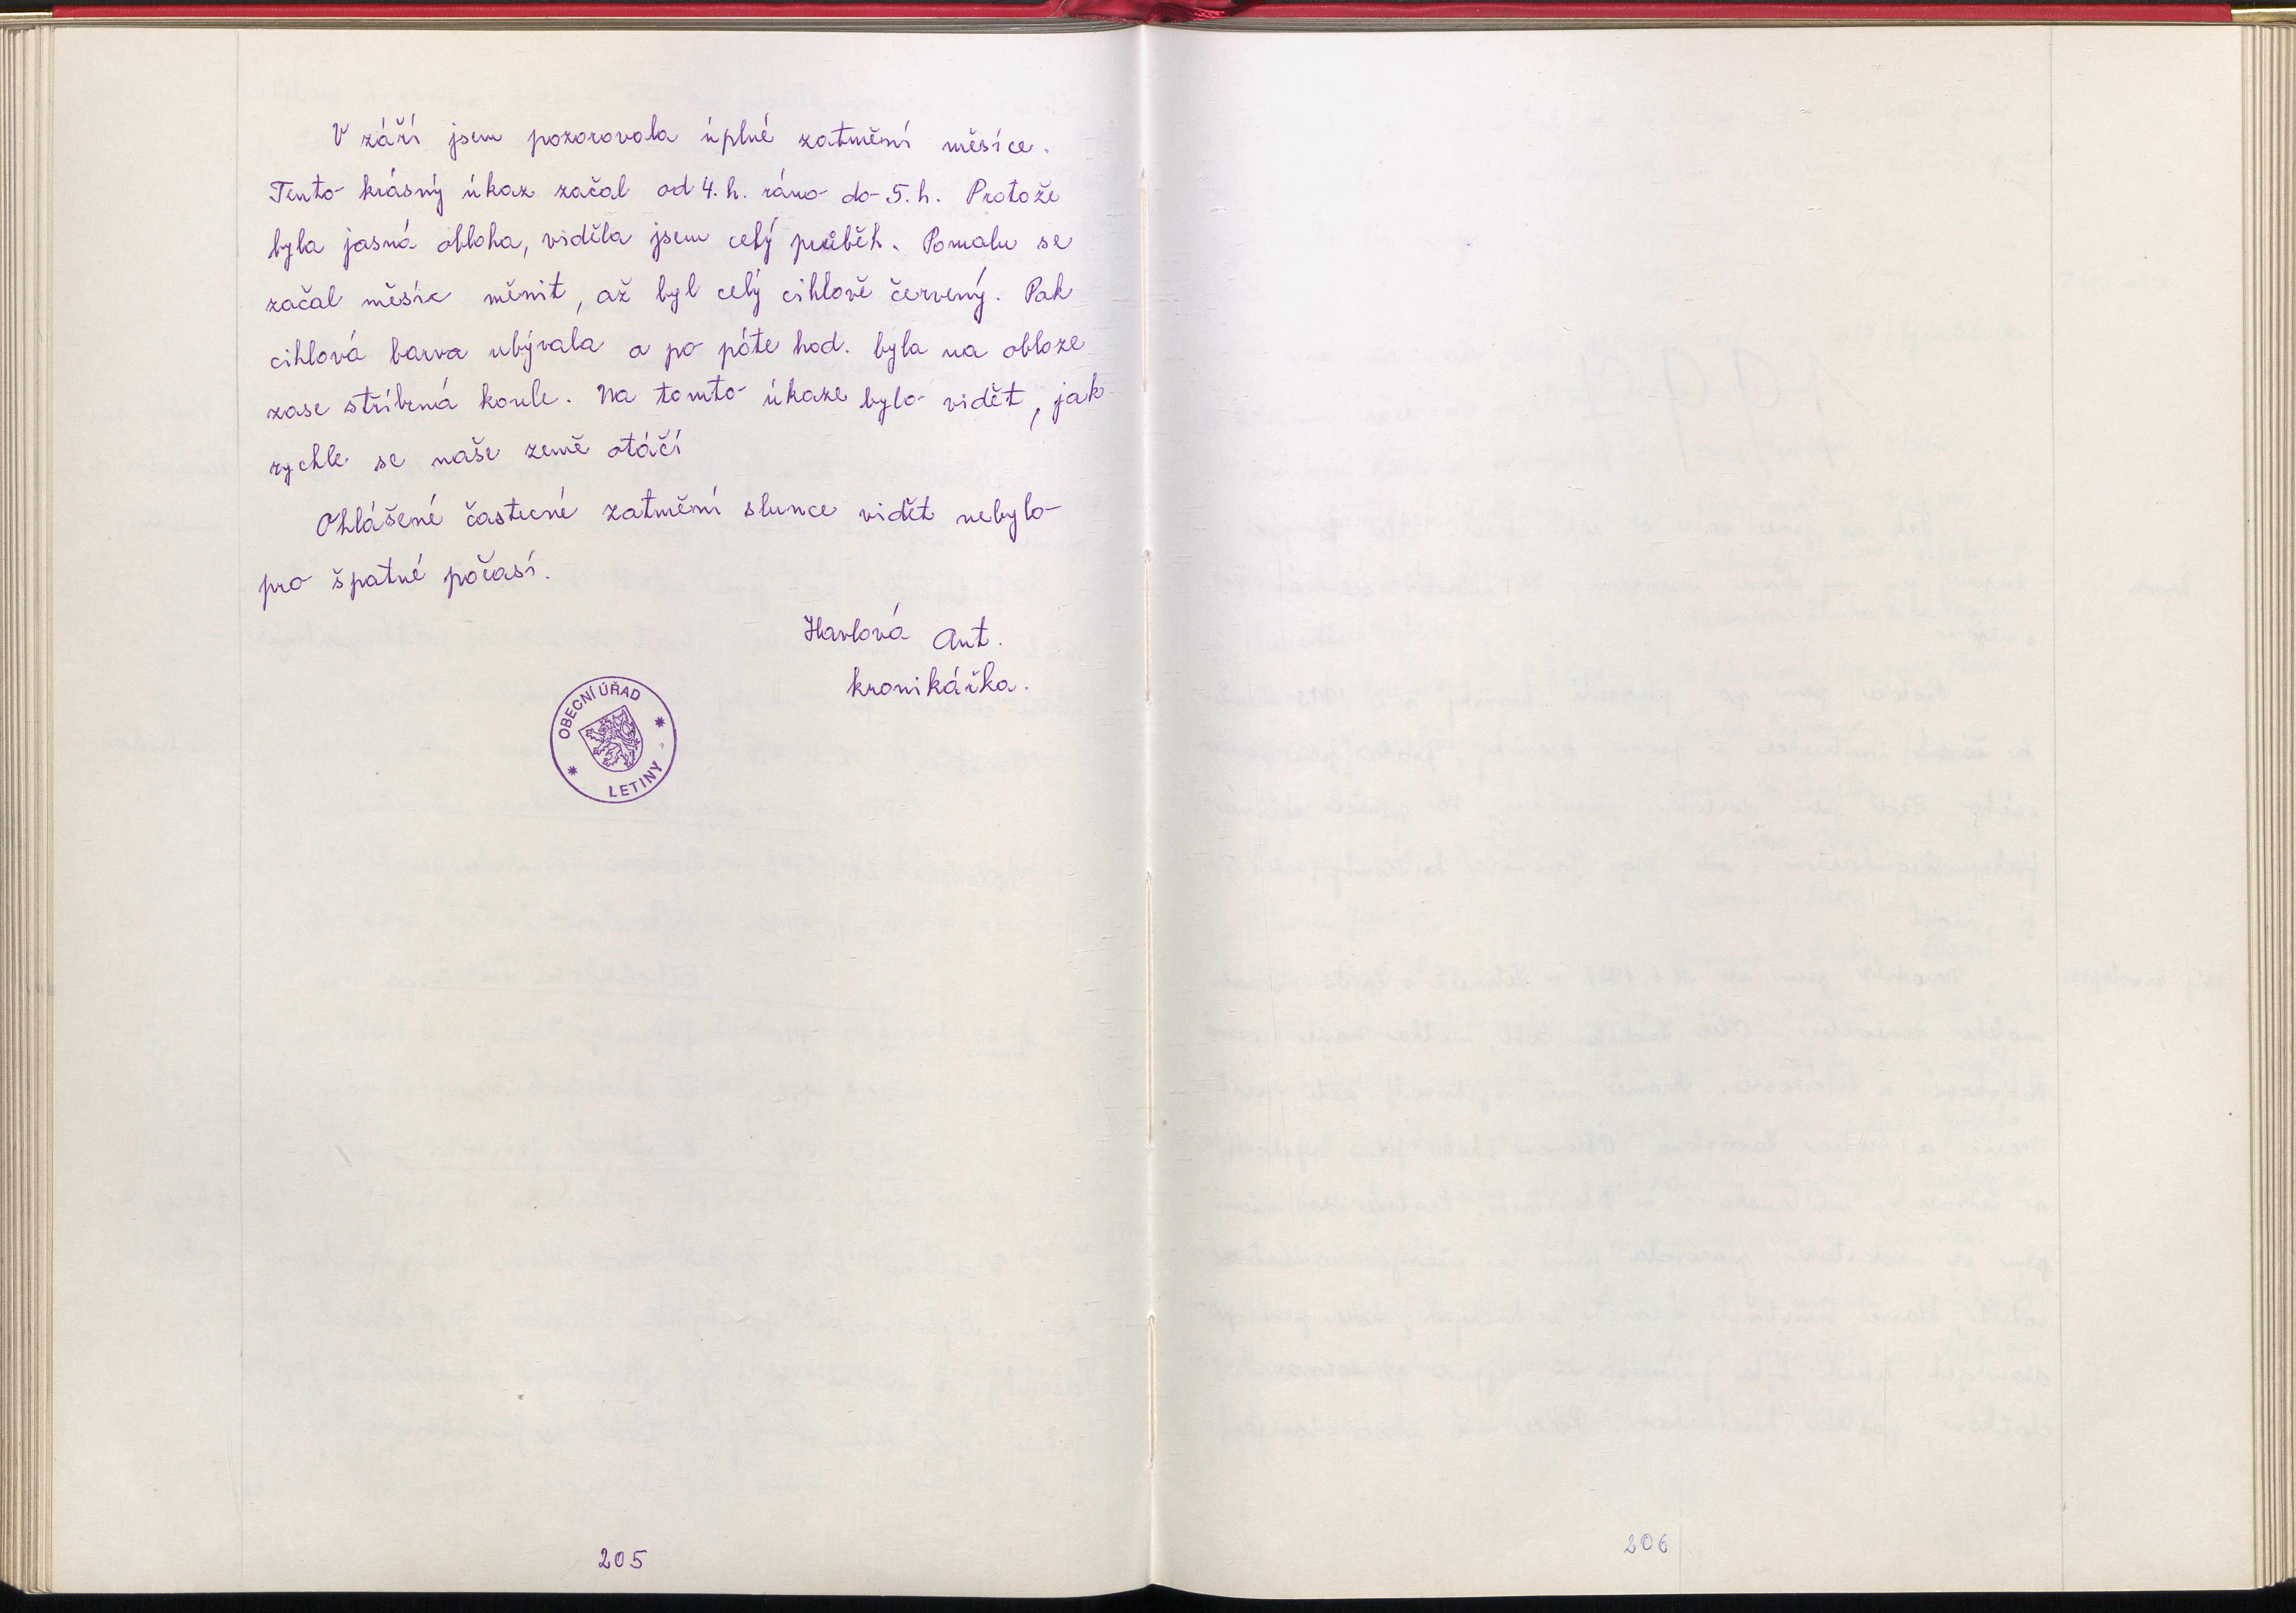 V září jsem pozorovala úplné zatmění měsíce.
Tento krásný úkaz začal od 4. h. ráno do 5. h. Protože
byla jasná obloha, viděla jsem celý průběh. Pomalu se
začal měsíc měnit, až byl celý cihlově červený. Pak
cihlová barva ubývala a po páte hod. byla na obloze
zase stříbrná koule. Na tomto úkaze bylo vidět, jak
rychle se naše země otáčí
Ohlášené částecné zatmění slunce vidět nebylo
pro špatné počasí.
Havlová Ant.
kronikářka.
OBECNÍ ÚŘAD
LETINY
205
206